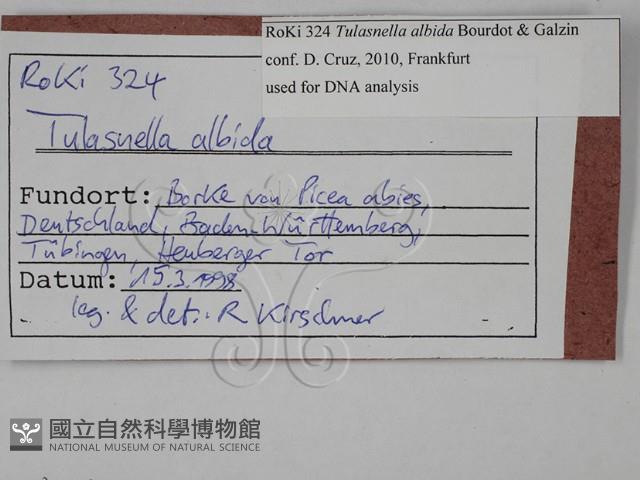 RoKi 324 Tulasnella albida Bourdot & Galzin
conf. D. Cruz, 2010, Frankfurt
used for DNA analysis
RoKi 324
Tulasnella albida
Fundort: Borke von Picea abies,
Deutschland, Baden-Württemberg,
Tübingen, Heuberger Tor
Datum: 15.3.1998
leg. & det.: R Kirschner
國立自然科學博物館
NATIONAL MUSEUM OF NATURAL SCIENCE